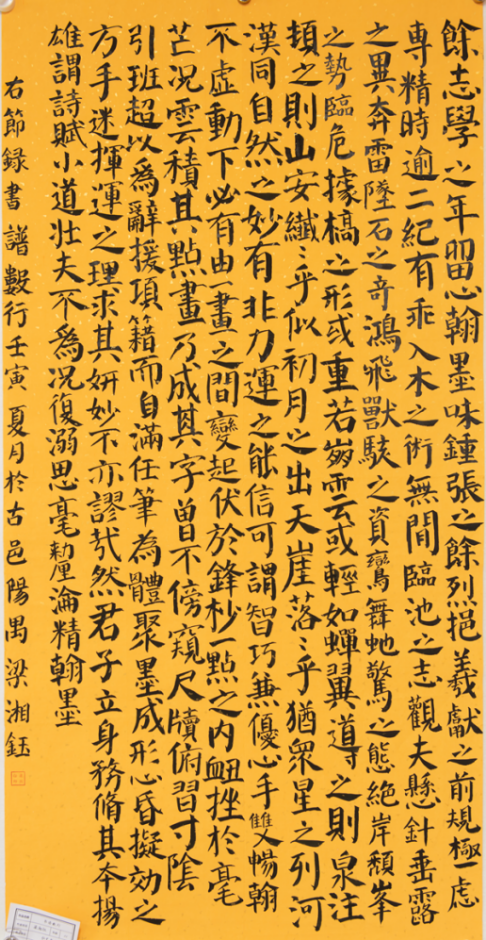 餘志學之年留心翰墨味鍾張之餘烈挹羲獻之前規極慮
專精時逾二紀有乖入木之術無間臨池之志觀夫懸針垂露
之異奔雷墜石之奇鴻飛獸駭之資鸞舞虵驚之態絕岸頹峯
之勢臨危據槁之形或重若崩雲或輕如蟬翼導之則泉注
頓之則山安纖〻乎似初月之出天崖落〻乎猶眾星之列河
漢同自然之妙有非力運之能信可謂智巧兼優心手雙暢翰
不虛動下必有由一畫之間變起伏於鋒杪一點之內衄挫於毫
芒況雲積其點畫乃成其字曾不傍窺尺牘俯習寸陰
引班超以為辭援項籍而自滿任筆為體聚墨成形心昏擬效之
方手迷揮運之理求其妍妙不亦謬哉然君子立身務脩其本揚
雄謂詩賦小道壯夫不為況復溺思毫釐淪精翰墨
右節錄書譜數行壬寅夏月於古邑陽禺梁湘鈺